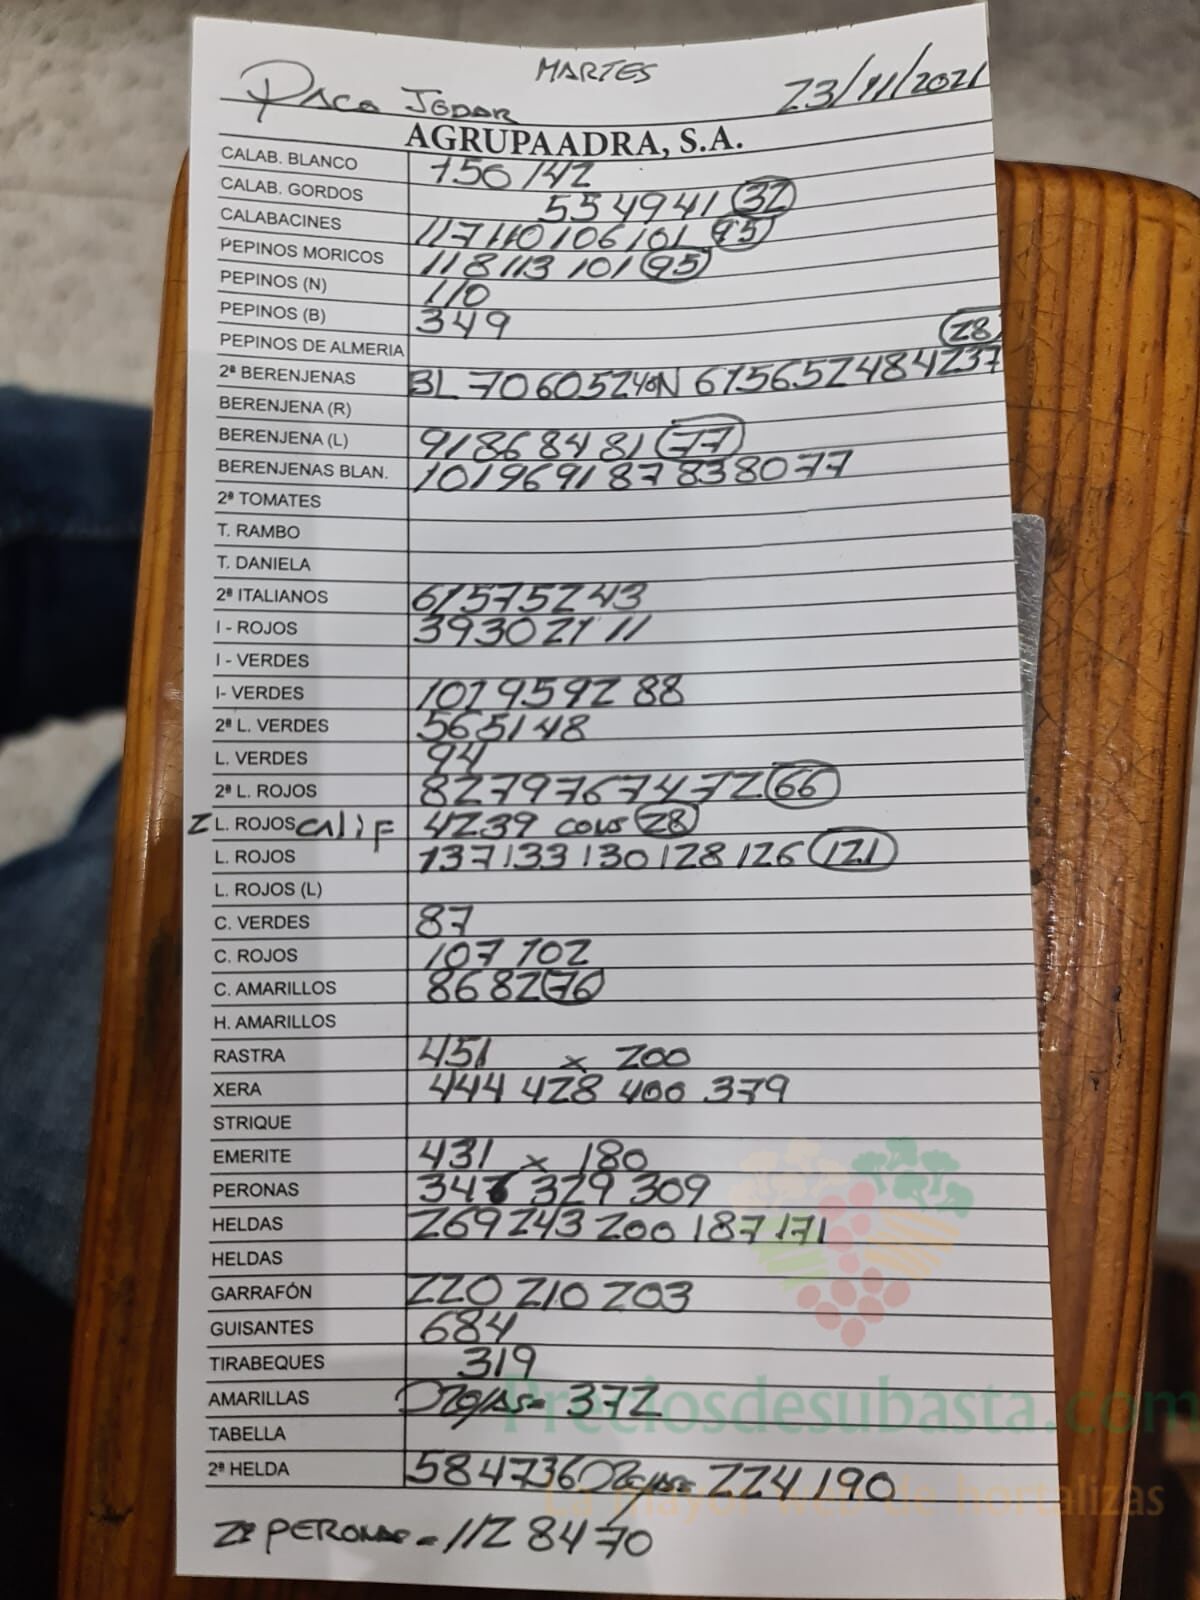 MARTES
PACO JODAR 23/11/2021
AGRUPAADRA, S.A.
CALAB. BLANCO 156 142
CALAB. GORDOS 55 49 41 32
CALABACINES 117 110 106 101 95
PEPINOS MORICOS 118 113 101 95
PEPINOS (N) 110
PEPINOS (B) 349
PEPINOS DE ALMERIA 28
2ª BERENJENAS BL 70 60 52 40 N 61 56 52 48 42 37
BERENJENA (R)
BERENJENA (L) 91 86 84 81 77
BERENJENAS BLAN. 101 96 91 87 83 80 77
2ª TOMATES
T. RAMBO
T. DANIELA
2ª ITALIANOS 61 57 52 43
I - ROJOS 39 30 21 11
I - VERDES
I- VERDES 101 95 92 88
2ª L. VERDES 56 51 48
L. VERDES 94
2ª L. ROJOS 82 79 76 74 72 66
2 L. ROJOS CALIF 42 39 CONS 28
L. ROJOS 137 133 130 128 126 121
L. ROJOS (L)
C. VERDES 87
C. ROJOS 107 102
C. AMARILLOS 86 82 76
H. AMARILLOS
RASTRA 451 x 200
XERA 444 428 400 379
STRIQUE
EMERITE 431 x 180
PERONAS 347 329 309
HELDAS 269 243 200 187 171
HELDAS
GARRAFÓN 220 210 203
GUISANTES 684
TIRABEQUES 319
AMARILLAS 372
TABELLA
2ª HELDA 58 47 36 224 190
2ª PERONAS - 112 84 70
Preciosdesubasta.com
La mayor web de hortalizas